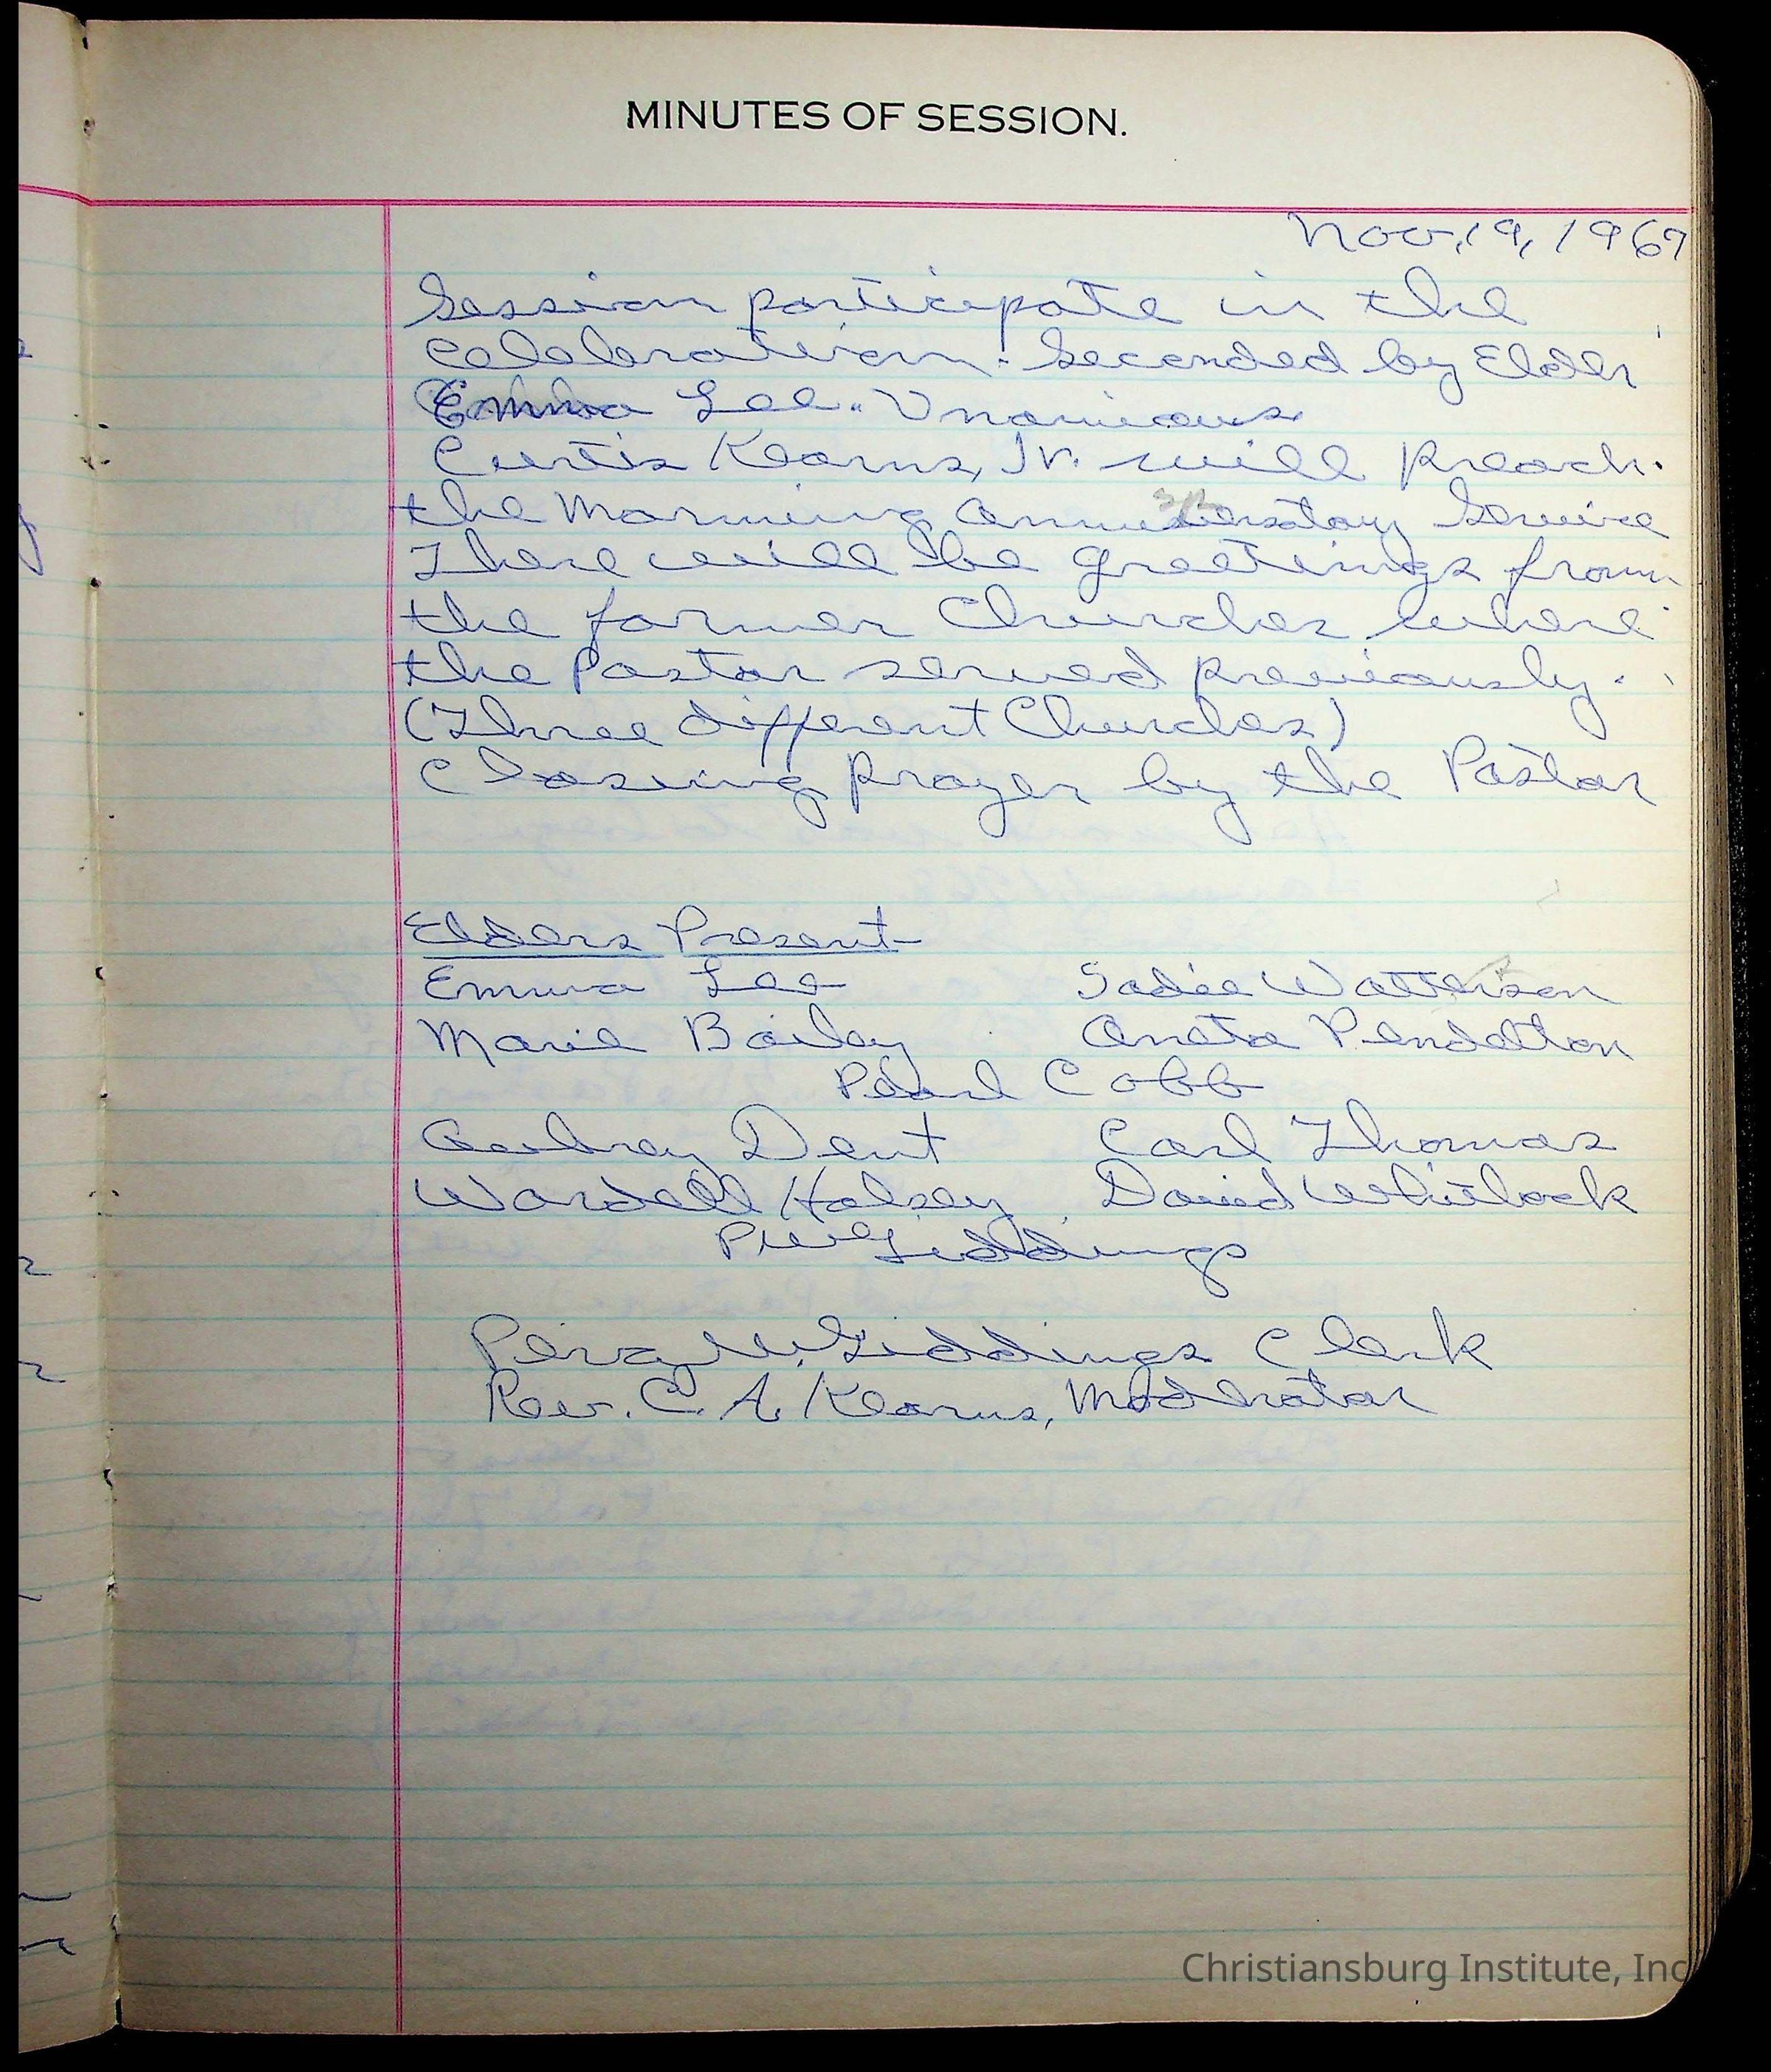 MINUTES OF SESSION.
Nov. 19, 1967
Session participate in the
celebration. Seconded by Elder
Emma Lee. Unanimous
Curtis Kearns, Jr. will preach.
the Morning Anniversary Service
There will be greetings from
the former Churches where
the Pastor served previously.
(Three different Churches)
Closing prayer by the Pastor
Elders Present
Emma Lee Sadie Watterson
Marie Bailey Aneta Pendelton
Pearl Cobb
Aubrey Dent Carl Thomas
Wardell Halsey David Whitlock
P.W. Giddings
Percy W. Giddings Clerk
Rev. C. A. Kearns, Moderator
Christiansburg Institute, Inc